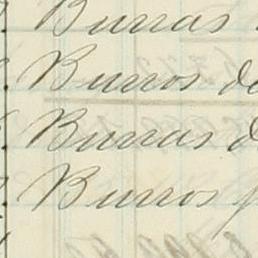 Burras
Burros de
Burras d
Burros